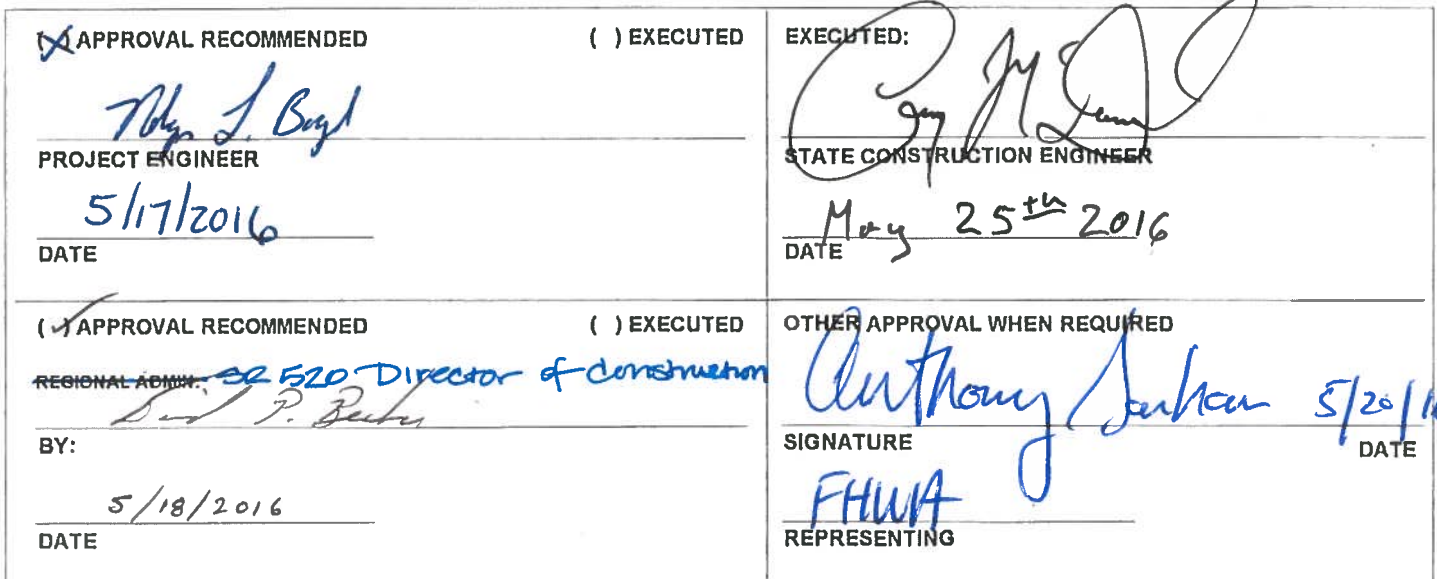 (X) APPROVAL RECOMMENDED ( ) EXECUTED
L. Boyd
PROJECT ENGINEER
5/17/2016
DATE
EXECUTED:
STATE CONSTRUCTION ENGINEER
May 25th 2016
DATE
(✓) APPROVAL RECOMMENDED ( ) EXECUTED
REGIONAL ADMIN: SR 520 Director of Construction
P.
BY:
5/18/2016
DATE
OTHER APPROVAL WHEN REQUIRED
Anthony 5/20/1
SIGNATURE DATE
FHWA
REPRESENTING